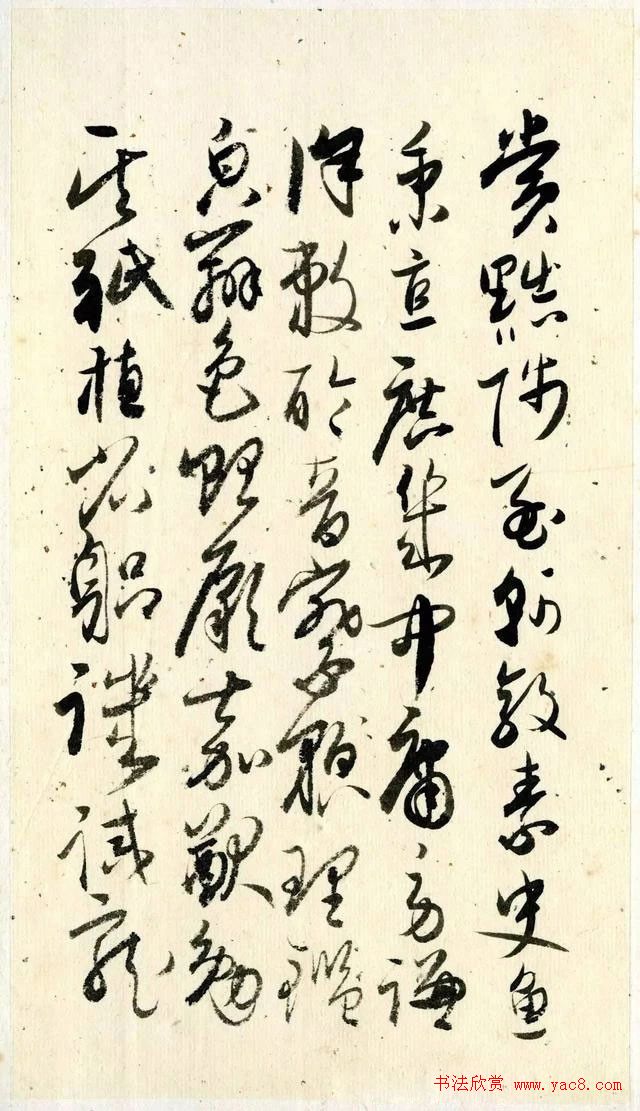 賞黜陟孟軻敦素史魚
秉直庶幾中庸勞謙
謹敕聆音察理鑑
皃辨色貽厥嘉猷勉
其祗植省躳譏誡寵
书法欣赏 www.yac8.com